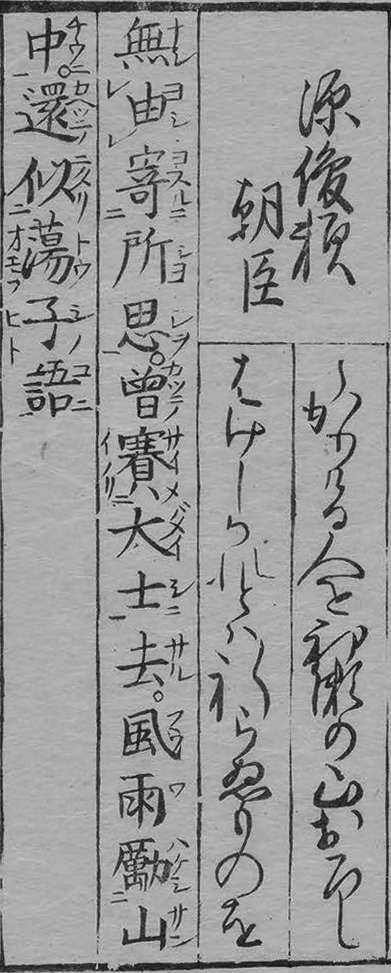 源俊頼
朝臣
うかりける人を初瀬の山おろし
はけしかれとは祈らぬものを
無由寄所思。曽賽大士去。風雨勵山
中。還似蕩子語